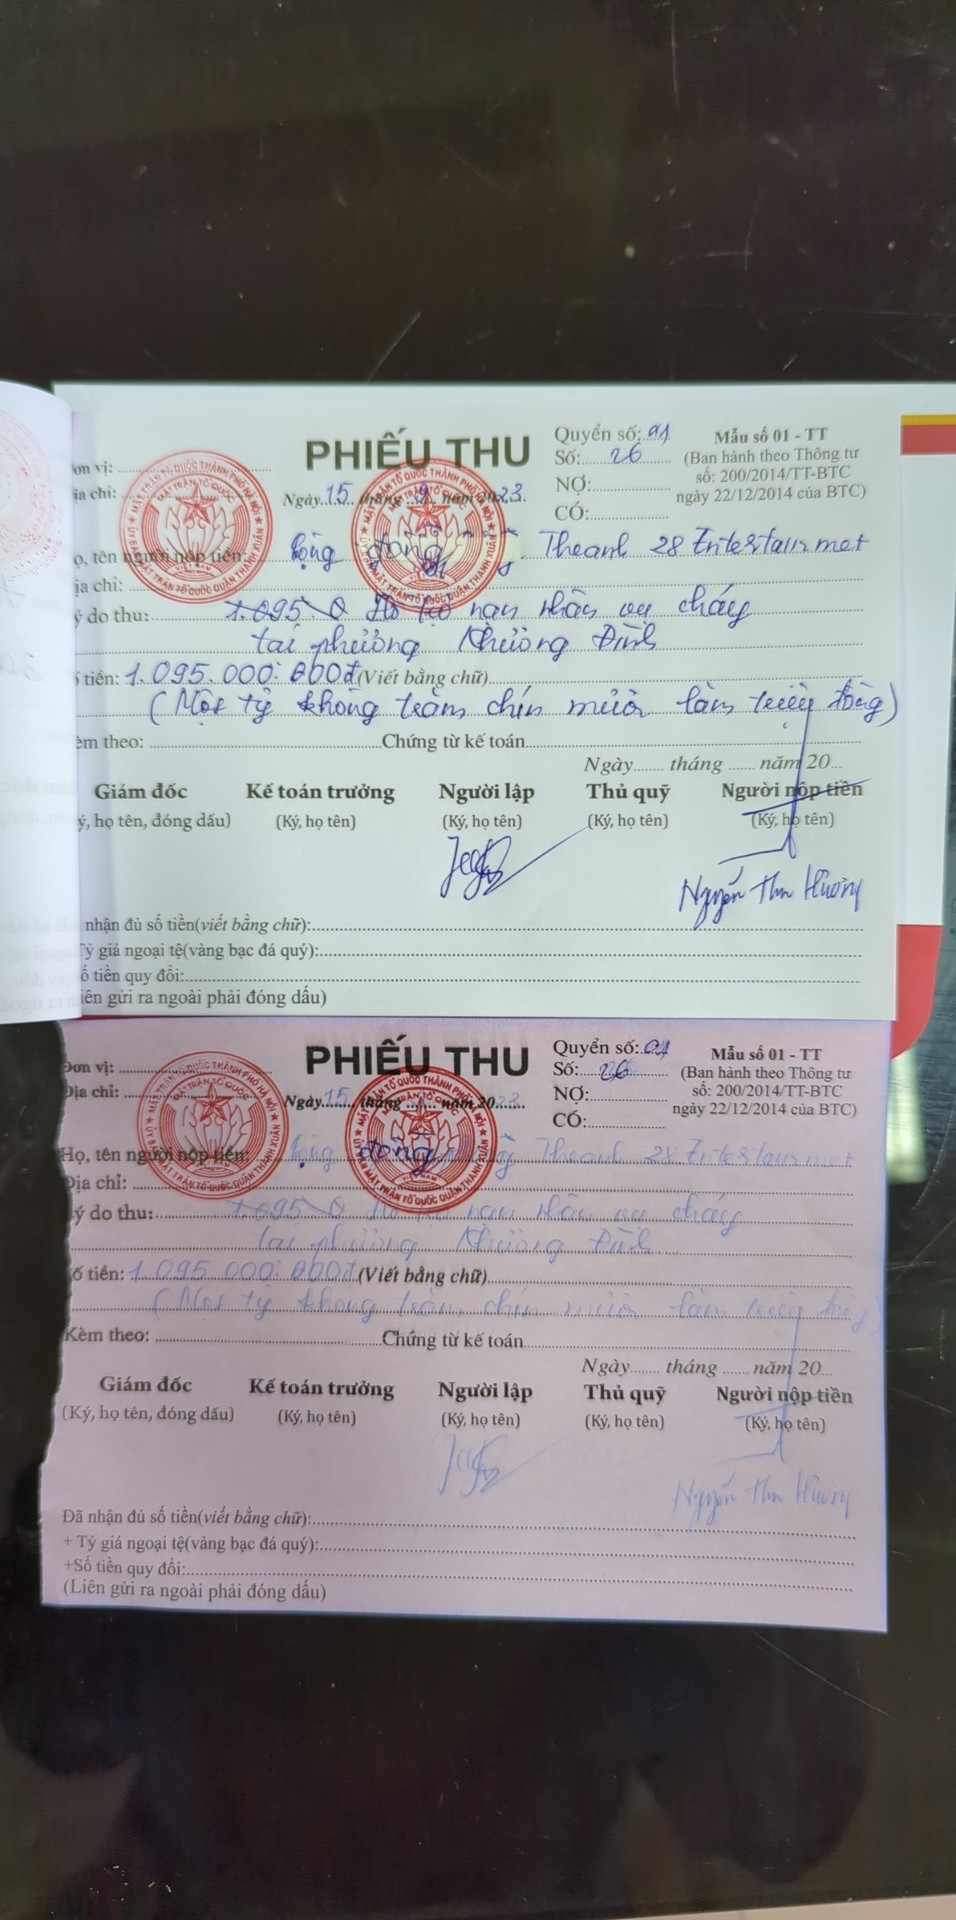 PHIẾU THU
Quyển số: 01
Số: 26
NỢ:
CÓ:
Mẫu số 01 - TT
(Ban hành theo Thông tư
số: 200/2014/TT-BTC
ngày 22/12/2014 của BTC)
ơn vị:
ịa chỉ:
Ngày 15 tháng 9 năm 2023
ọ, tên người nộp tiền: Cộng đồng Theanh 28 Entertaiment
ịa chỉ:
ý do thu: Hỗ trợ nạn nhân vụ cháy
tại phường Khương Đình
ố tiền: 1.095.000.000đ (Viết bằng chữ)
(Một tỷ không trăm chín mươi lăm triệu đồng)
èm theo: Chứng từ kế toán
Ngày tháng năm 20
Giám đốc Kế toán trưởng Người lập Thủ quỹ Người nộp tiền
ý, họ tên, đóng dấu) (Ký, họ tên) (Ký, họ tên) (Ký, họ tên) (Ký, họ tên)
Nguyễn Thu Hương
nhận đủ số tiền(viết bằng chữ):
Tỷ giá ngoại tệ(vàng bạc đá quý):
ố tiền quy đổi:
iên gửi ra ngoài phải đóng dấu)
PHIẾU THU
Quyển số: 01
Số: 26
NỢ:
CÓ:
Mẫu số 01 - TT
(Ban hành theo Thông tư
số: 200/2014/TT-BTC
ngày 22/12/2014 của BTC)
Đơn vị:
Địa chỉ:
Ngày 15 tháng năm 2023
Họ, tên người nộp tiền: Cộng đồng Theanh 28 Entertaiment
Địa chỉ:
ý do thu: Hỗ trợ nạn nhân vụ cháy
tại phường Khương Đình
ố tiền: 1.095.000.000đ (Viết bằng chữ)
(Một tỷ không trăm chín mươi lăm triệu đồng)
Kèm theo: Chứng từ kế toán
Ngày tháng năm 20
Giám đốc Kế toán trưởng Người lập Thủ quỹ Người nộp tiền
(Ký, họ tên, đóng dấu) (Ký, họ tên) (Ký, họ tên) (Ký, họ tên) (Ký, họ tên)
Nguyễn Thu Hương
Đã nhận đủ số tiền(viết bằng chữ):
+ Tỷ giá ngoại tệ(vàng bạc đá quý):
+Số tiền quy đổi:
(Liên gửi ra ngoài phải đóng dấu)